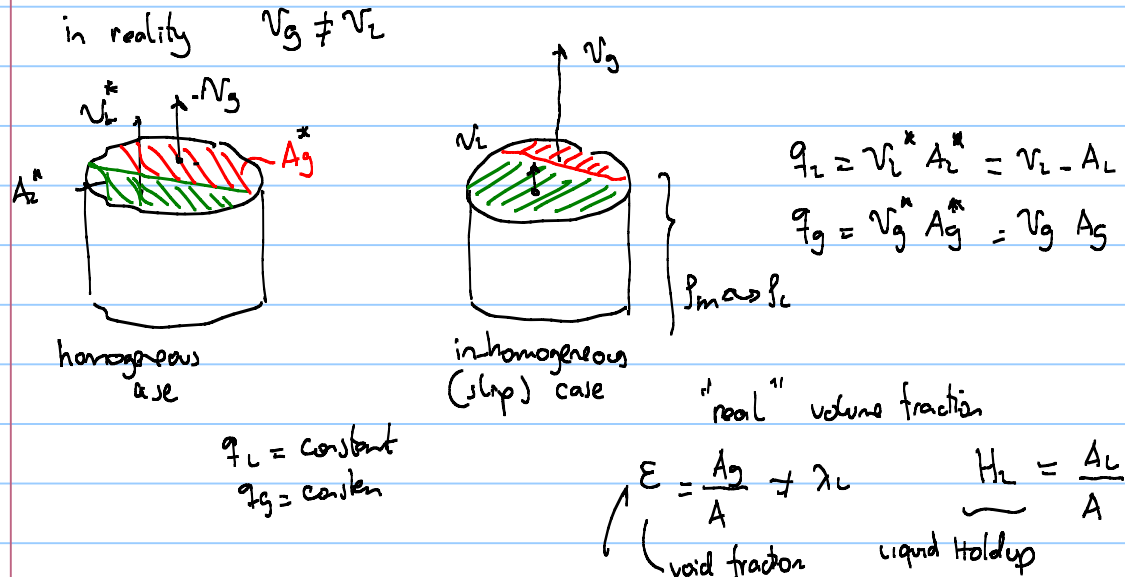 in reality Vg ≠ VL
VL* Vg
Ag*
AL*
homogeneous
case
Vg
VL
ρm ↔ ρL
inhomogeneous
(slip) case
qL = VL* AL* = VL - AL
qg = Vg* Ag* = Vg Ag
qL = constant
qg = constan
"real" volume fraction
ε = Ag/A ≠ λL HL = AL/A
void fraction Liquid Holdup